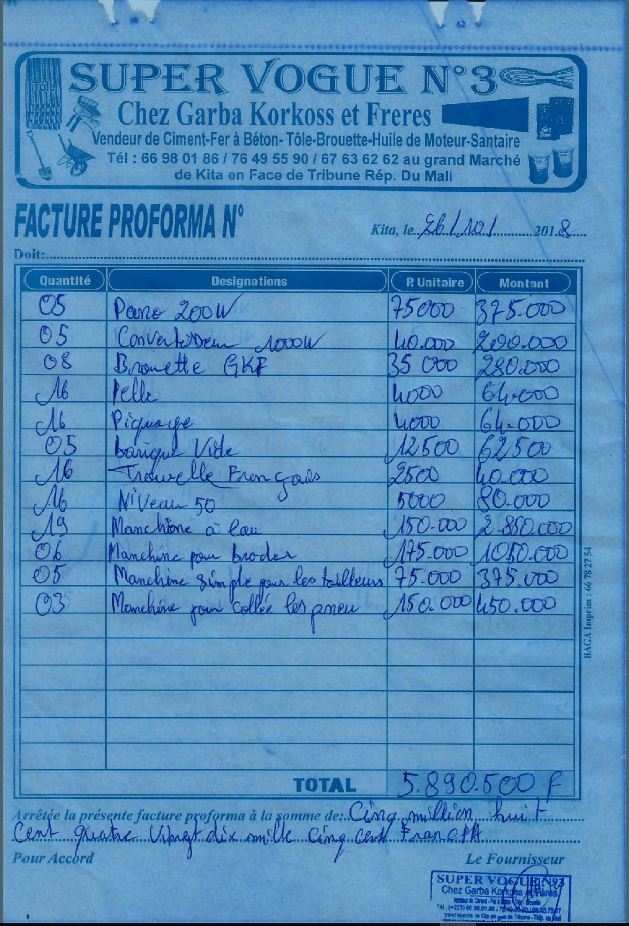 SUPER VOGUE N°3
Chez Garba Korkoss et Freres
Vendeur de Ciment-Fer à Béton- Tôle-Brouette-Huile de Moteur-Santaire
Tél : 66 98 01 86 / 76 49 55 90 / 67 63 62 62 au grand Marché
de Kita en Face de Tribune Rép. Du Mali
FACTURE PROFORMA N°
Kita, le 26/10/ 2018
Doit:
Quantité Designations P. Unitaire Montant
05 Pano 200W 75000 375.000
05 Convertisseur 1000W 40.000 200.000
08 Brouette GKF 35 000 280.000
16 Pelle 4000 64.000
16 Piquage 4000 64.000
05 barique Vide 12500 62500
16 Trouvelle Français 2500 40.000
16 Niveau 50 5000 80.000
19 Manchine à eau 150.000 2.850.000
06 Manchine pour Broder 175.000 1050.000
05 Manchine simple pour les tailleurs 75.000 375.000
03 Manchine pour collée les pneu 150.000 450.000
TOTAL 5.890.500 F
Arrêtée la présente facture proforma à la somme de: Cinq million huit
Cent quatre Vingt dix mille Cinq cent Francs
Pour Accord Le Fournisseur
SUPER VOGUE N°3
Chez Garba Korkoss et Freres
BAGA Imprim : 66 78 27 54